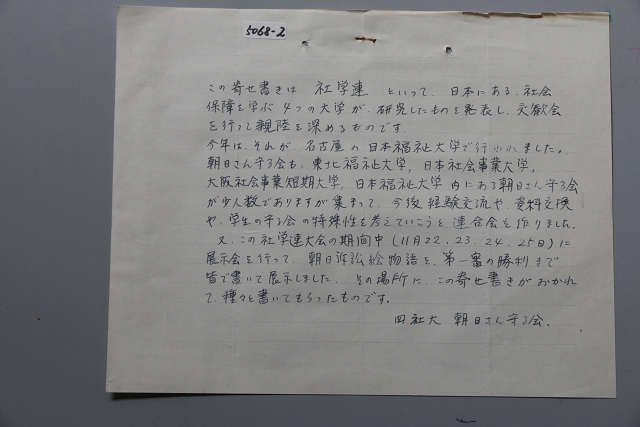 5068-2
この寄せ書きは 社学連 といって、日本にある、社会
保障を学ぶ 4つの大学が、研究したものを発表し、交歓会
を行って親陸を深めるものです。
今年は、それが、名古屋の日本福祉大学で行われました。
朝日さん守る会も、東北福祉大学、日本社会事業大学、
大阪社会事業短期大学、日本福祉大学内にある朝日さん守る会
が少人数でありますが集まって、今後経験交流や、資料交換
や、学生の守る会の特殊性を考えていこうと連合会を作りました。
又、この社学連大会の期間中(11月22.23.24.25日)に
展示会を行って、朝日訴訟絵物語を、第一審の勝利まで
皆で書いて展示しました。その場所に、この寄せ書きがおかれ
て、種々と書いてもらったものです。
日社大 朝日さん守る会.